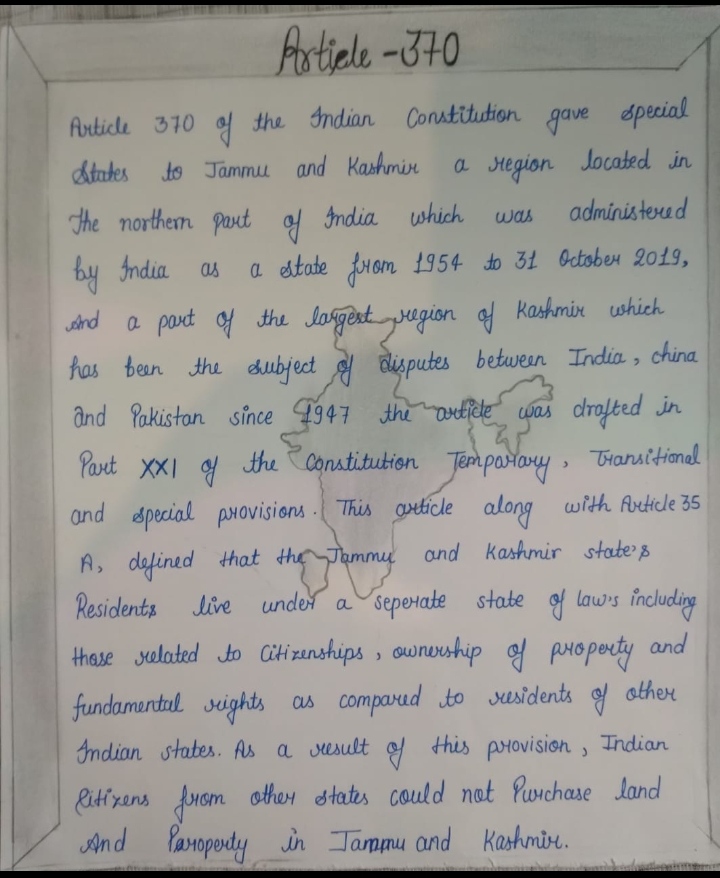 Article - 370
Article 370 of the Indian Constitution gave special
States to Jammu and Kashmir a region located in
The northern part of India which was administered
by India as a state from 1954 to 31 October 2019,
And a part of the largest region of Kashmir which
has been the subject of disputes between India, china
and Pakistan since 1947 the article was drafted in
Part XXI of the Constitution Temparary, Transitional
and special provisions. This article along with Article 35
A, defined that the Jammu and Kashmir state's
Residents live under a seperate state of law's including
those related to Citizenships, ownership of property and
fundamental rights as compared to residents of other
Indian states. As a result of this provision, Indian
Citizens from other states could not Purchase land
And Paroperty in Jammu and Kashmir.